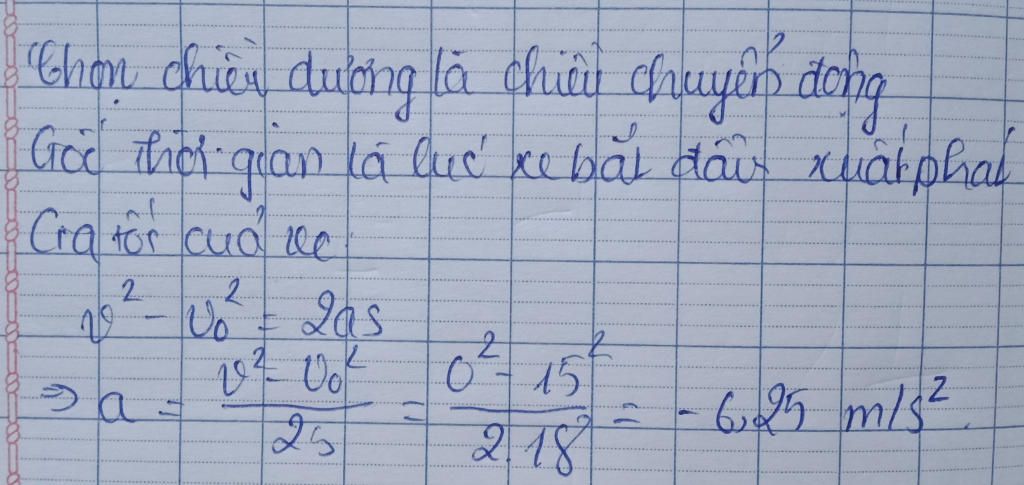 Chọn chiều dương là chiều chuyển động
Gốc thời gian là lúc xe bắt đầu xuất phát
Gia tốc của xe
v² - v₀² = 2as
⇒ a = (v² - v₀²) / 2s = (0² - 15²) / 2.18 = - 6,25 m/s².